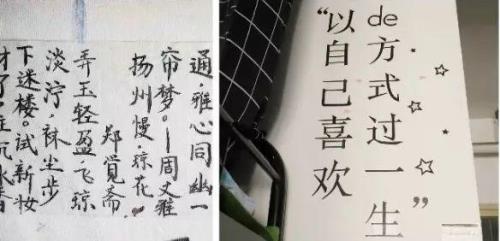 通。雅心同幽一
帘梦。—周文雅
扬州慢。琼花
郑觉斋
弄玉轻盈飞琼
淡泞，袜尘步
下迷楼。试新妆
才了，炷沉水
“以自己喜欢
de方式过一生”